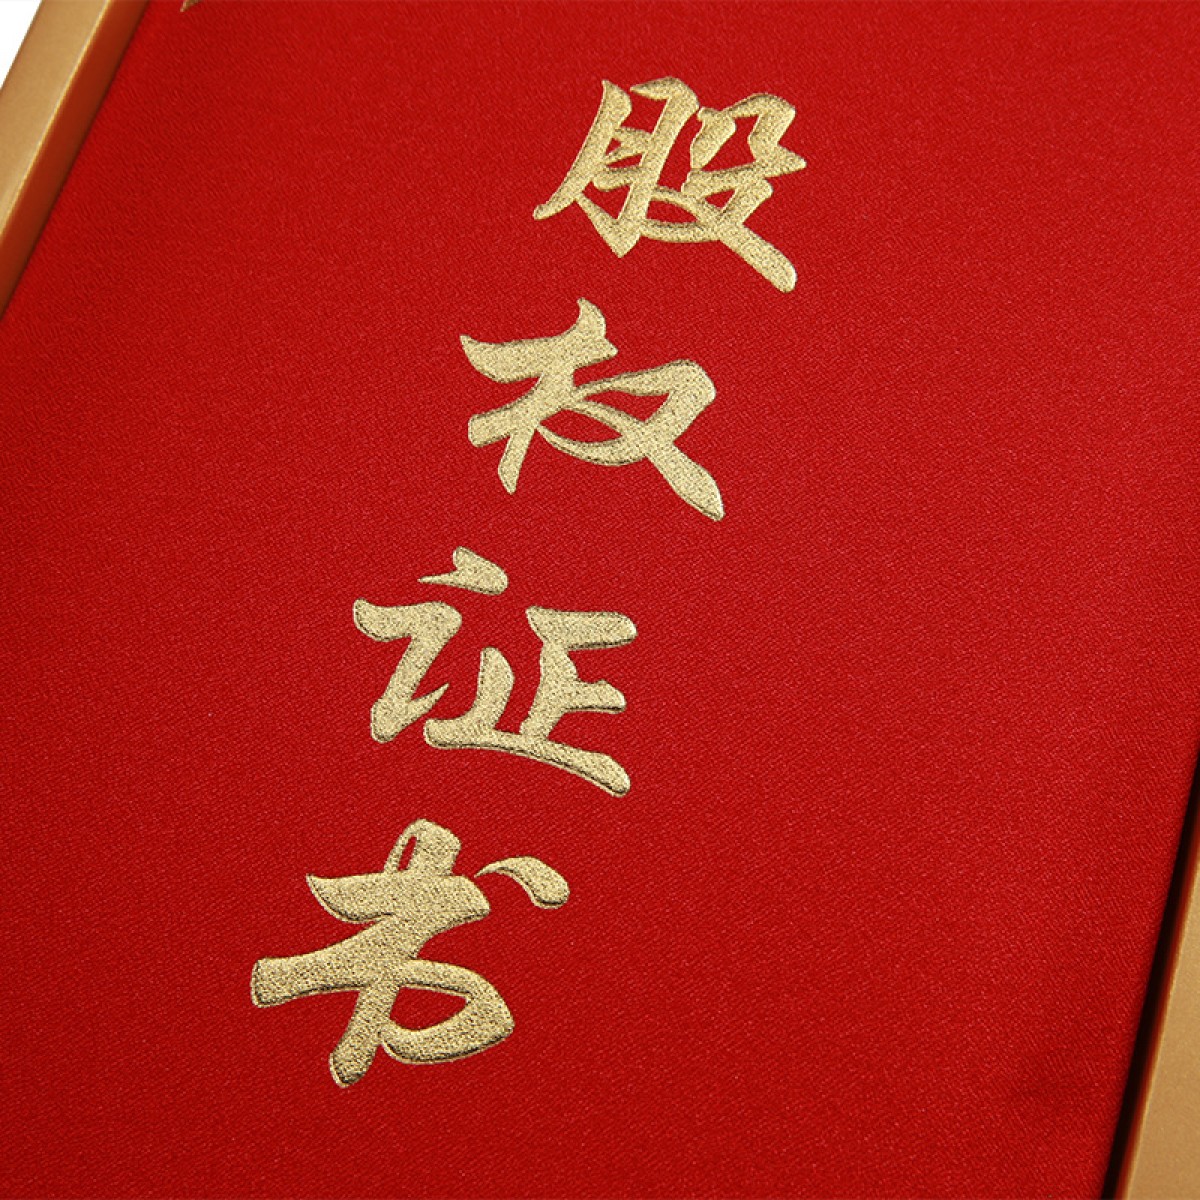 股权证书